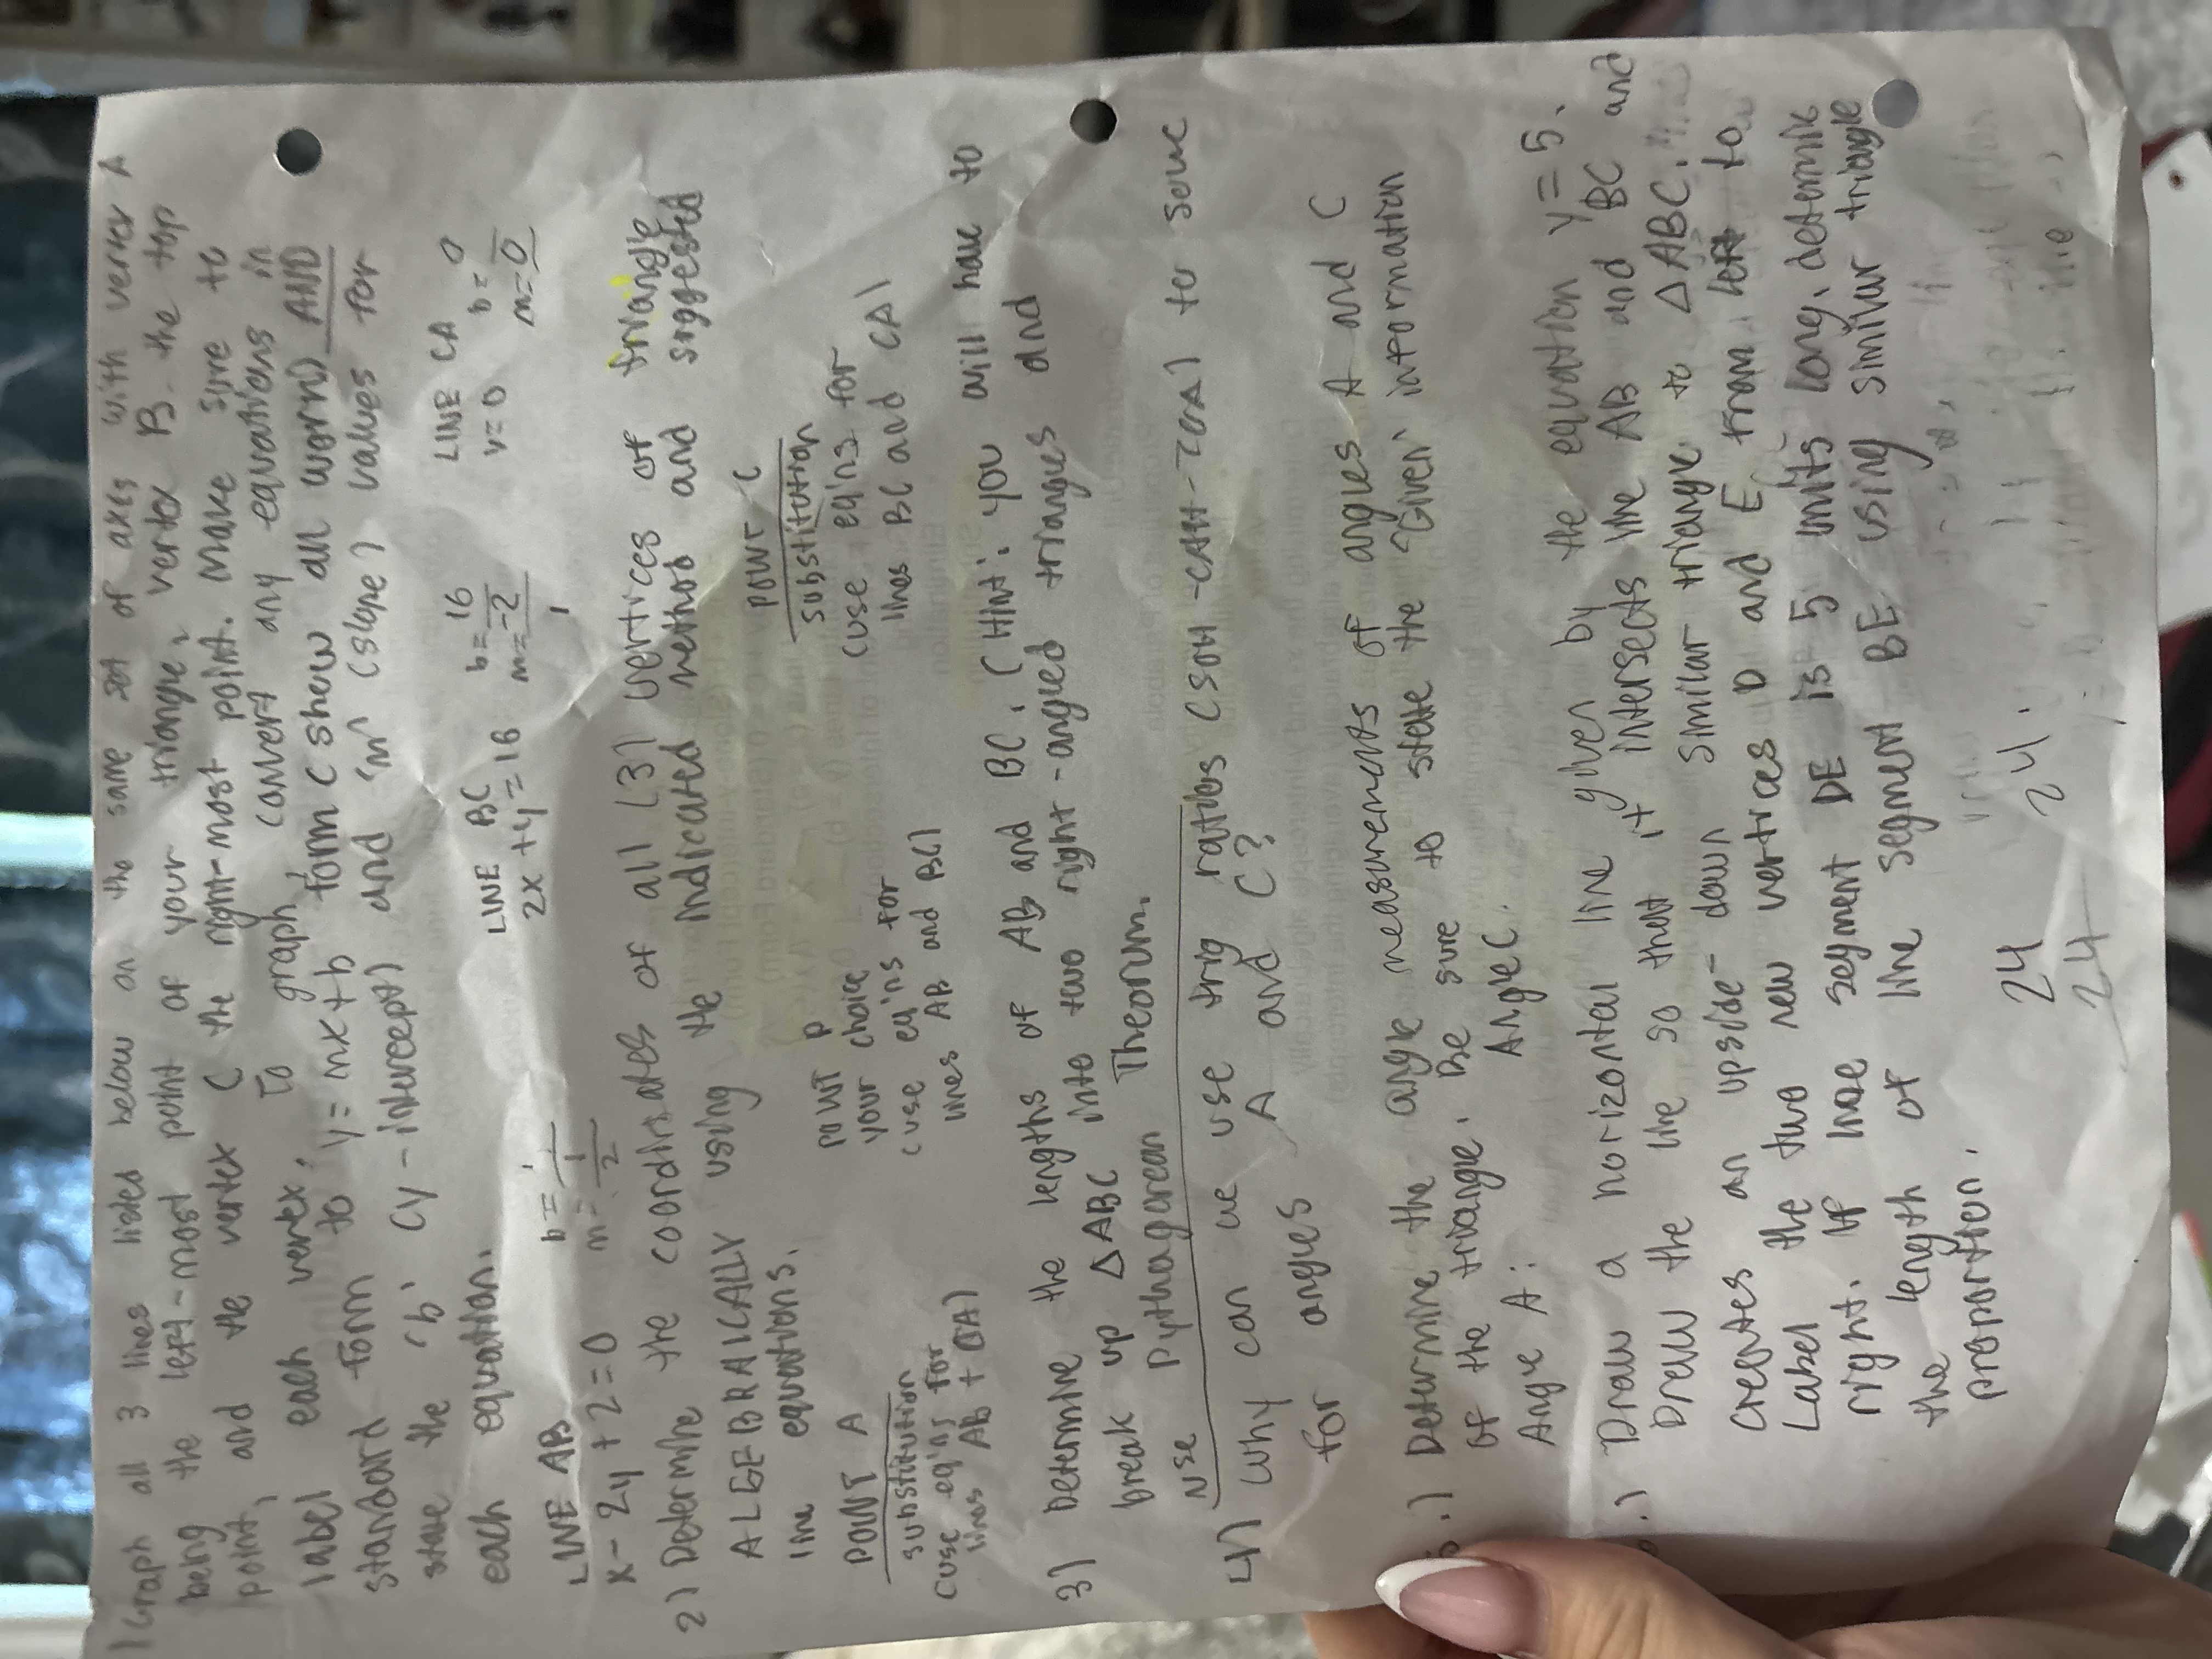 1 Graph all 3 lines listed below on the same set of axes with vertex A
being the left-most point of your triangle, vertex B the top
point, and the vertex C the right-most point. Make sure to
label each vertex. To graph, convert any equations in
standard form to y=mx+b form (show all work) AND
state the 'b' (y-intercept) and 'm' (slope) values for
each equation.
LINE AB
x-2y+2=0
b=1
m=1/2
LINE BC
2x+y=16
b=16
m=-2
LINE CA
y=0
b=0
m=0
2) Determine the coordinates of all (3) vertices of triangle
ALGEBRAICALLY using the indicated method and suggested
line equations.
POINT A
substitution
(use eq'ns for
lines AB + CA)
POINT B
your choice
(use eq'ns for
lines AB and BC)
POINT C
substitution
(use eq'ns for
lines BC and CA)
3) Determine the lengths of AB and BC. (Hint: you will have to
break up △ABC into two right-angled triangles and
use Pythagorean Theorum.
4) Why can we use trig ratios (SOH-CAH-TOA) to solve
for angles A and C?
5.) Determine the angle measurements of angles A and C
of the triangle. Be sure to state the "Given" information
Angle A: Angle C:
.) Draw a horizontal line given by the equation y=5.
Draw the line so that it intersects line AB and BC and
creates an upside-down similar triangle to △ABC.
Label the two new vertices D and E from left to
right. If line segment DE is 5 units long, determine
the length of line segment BE using similar triangle
proportion.
24 24.
24